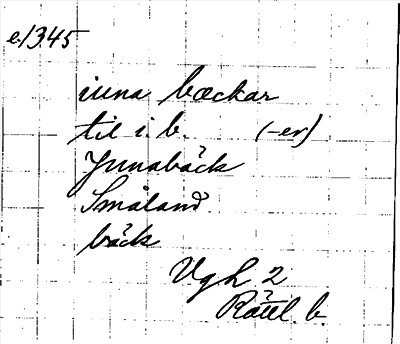 e/1345
iuna bæckar
til i. b. (-er)
Junabäck
Småland
bäck
VgL 2
Rättl. b.